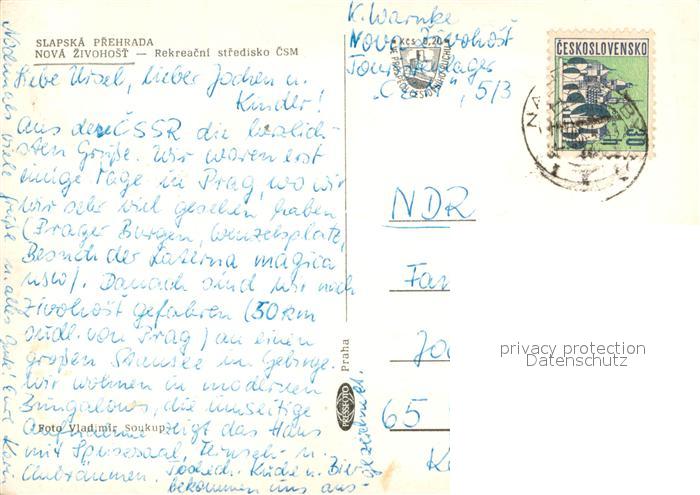 SLAPSKÁ PŘEHRADA
NOVÁ ŽIVOHOŠŤ — Rekreační středisko ČSM
Liebe Ursel, lieber Jochen u.
Kinder!
Aus der ČSSR die herzlich-
sten Grüße. Wir waren erst
einige Tage in Prag, wo wir
wir sehr viel gesehen haben
(Prager Burgen, Wenzelsplatz,
Besuch der Laterna magica
usw). Danach sind wir nach
Živohošt gefahren (50 km
südl. von Prag) an einen
großen Stausee im Gebirge.
Wir wohnen in modernen
Bungalows, die umseitige
Aufnahme zeigt das Haus
mit Speisesaal, Fernseh- u.
Clubräumen. Tschech. Küche u. Bier
bekommen uns aus-
gezeichnet.
Nochmals viele Grüße u. alles Gute! Eure
Foto Vladimír Soukup
PRESSFOTO
Praha
K. Warnke
Nova Živohošt
Touristenlager
5/3
Kčs 0,20
ČESKOSLOVENSKO
30 h
NDR
Fam
Joc
65
K
privacy protection
Datenschutz